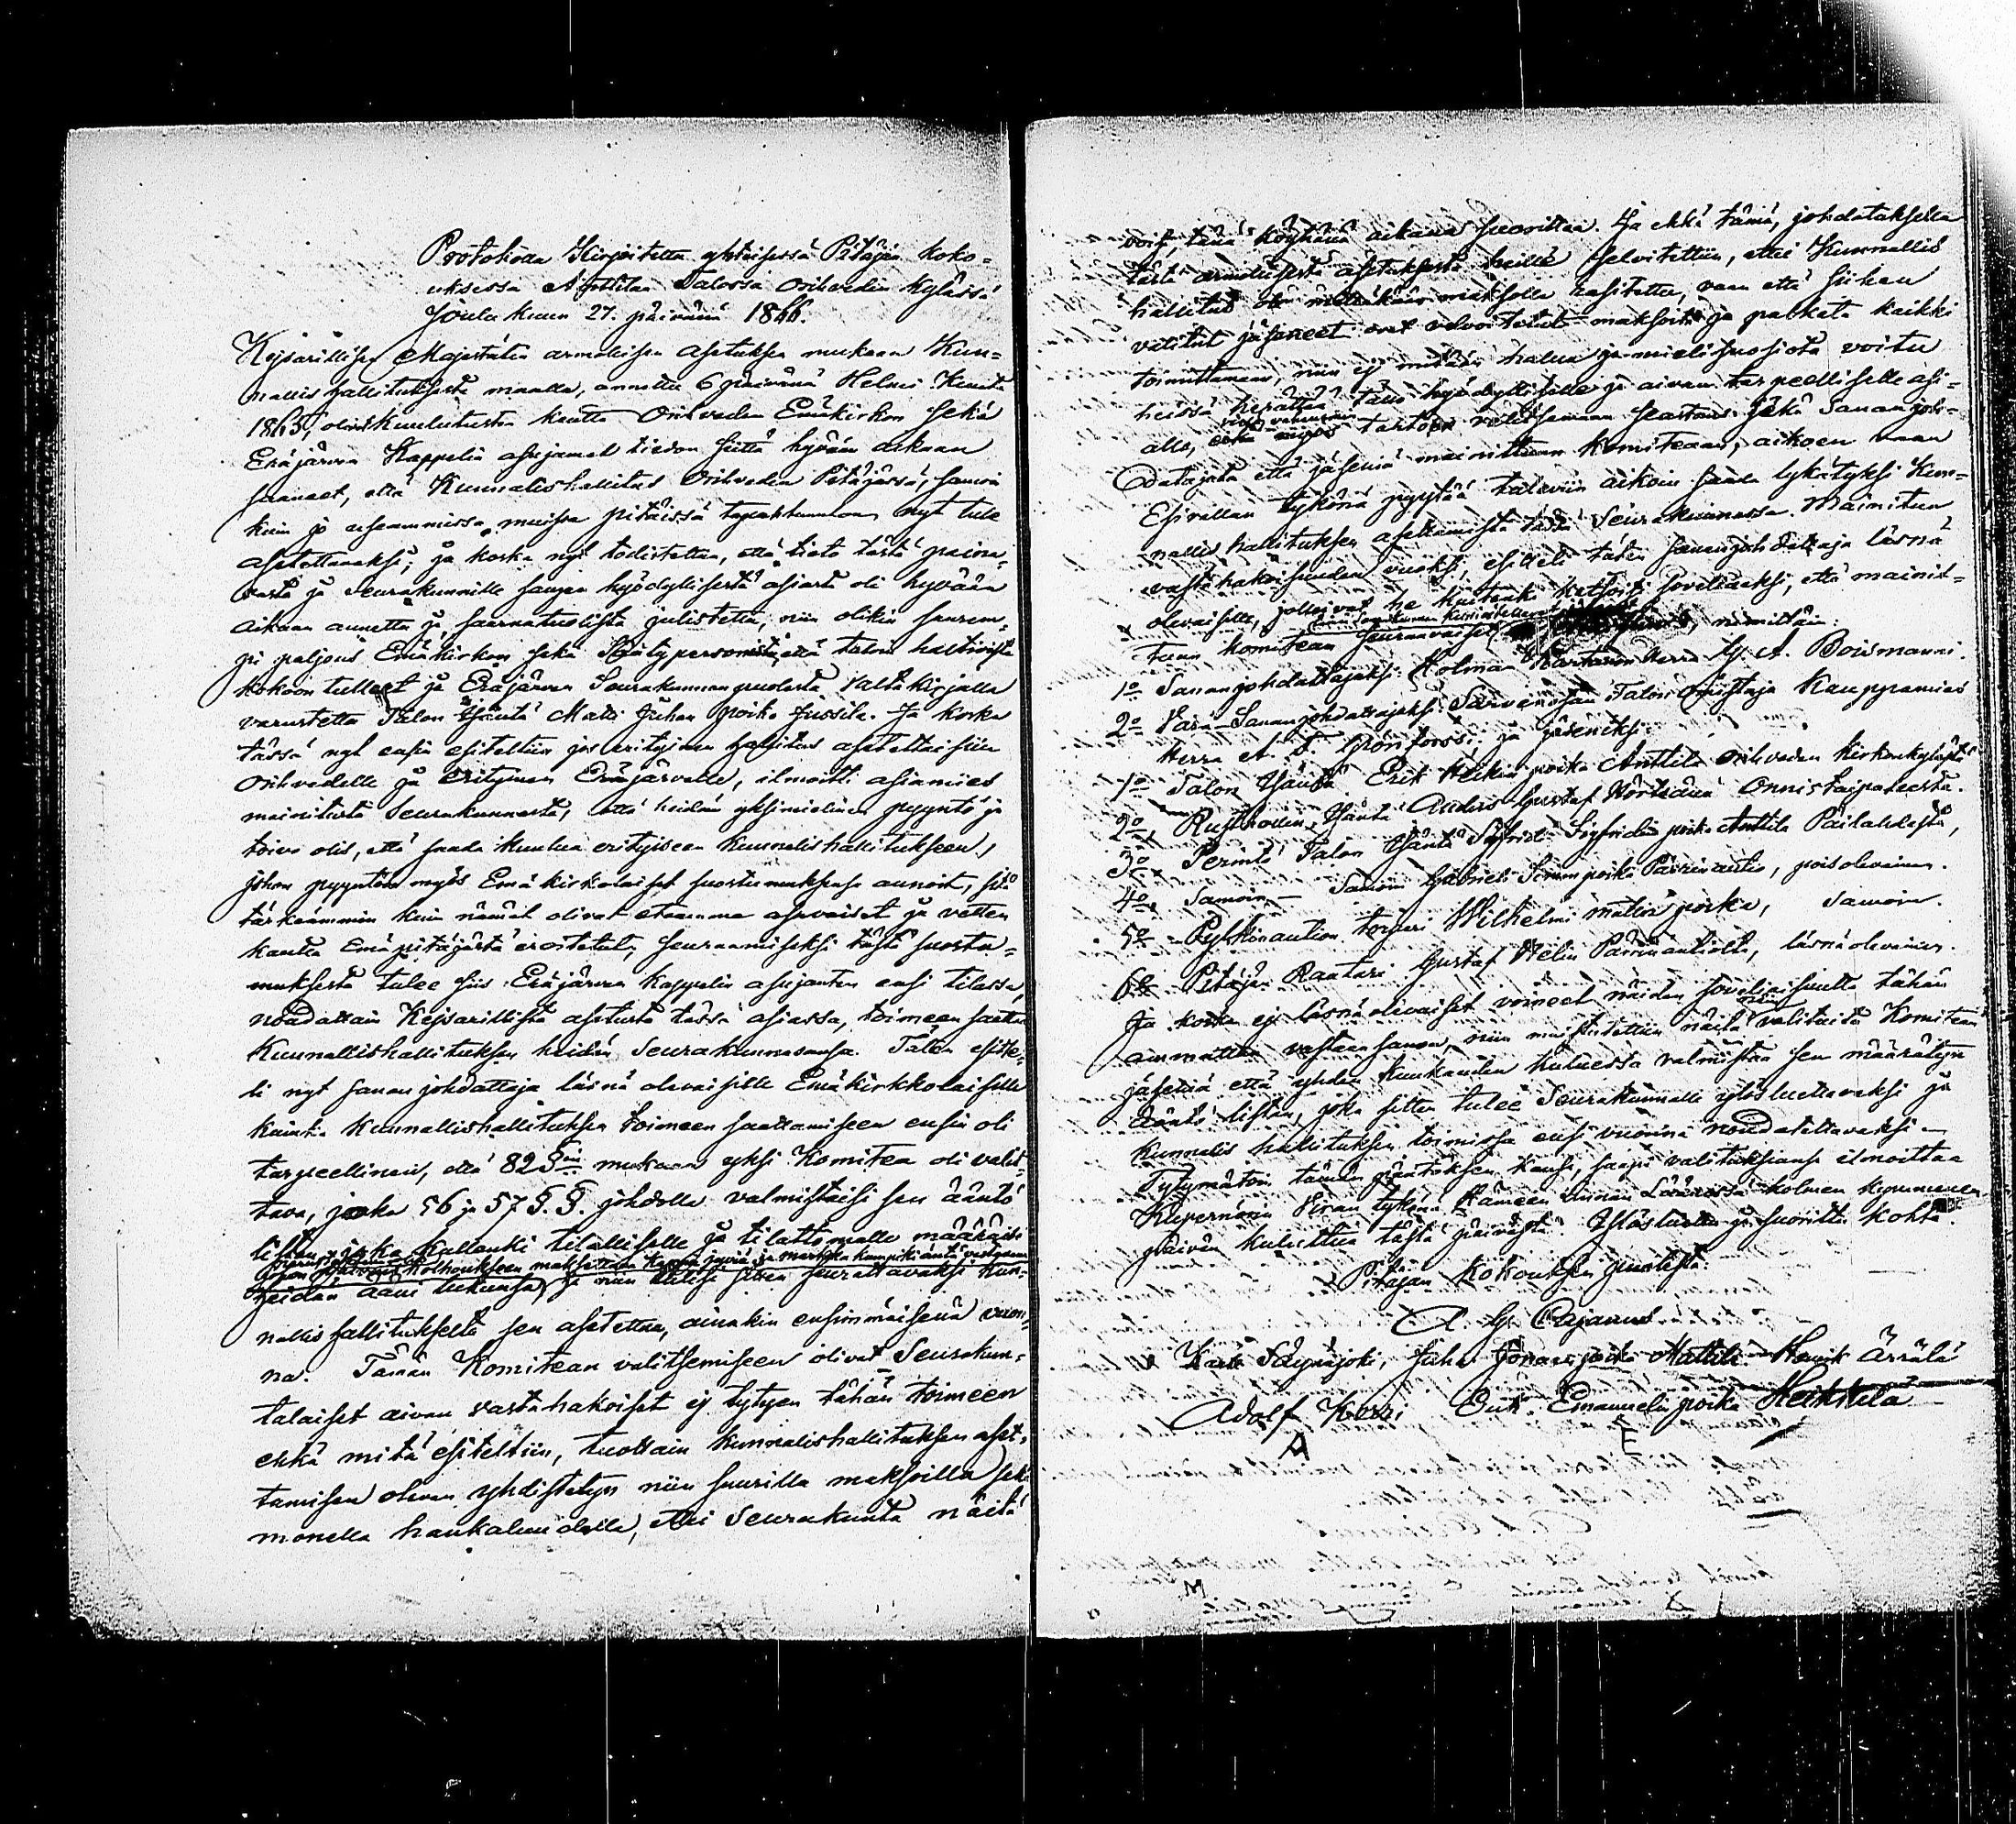 Protokolla Kirjoitettu yhteisessä Pitäjän koko-
uksessa Anttilan Talossa Orihveden Kylässä
Joulu kuun 27. päivänä 1866.
Kejsarillisen Majestätin armollisen Asetuksen mukaan Kun-
nallis hallituksesta maalla, annettu 6 päivänä Helmi Kuuta
1865, olivat kuulutusten kautta Orihveden Emäkirkon sekä
Eräjärven Kappelin asujamet tiedon siitä hyvään aikaan
saaneet, että Kunnalishallitus Orihveden Pitäjässä, samoin
kuin jo useammissa muissa pitäissä tapahtunut on nyt tule
asetettavaksi; ja koska nyt todistettiin, että tieto tästä paina-
vasta ja Seurakunnille sangen hyödyllisestä asiasta oli hyvään
aikaan annettu ja saarnatuolista julistettu, niin olikin suurem-
pi paljous Emäkirkon sekä Säätypersonista, että talon haltioista
kokoon tulleet ja Eräjärven Seurakunnan puolesta Valtakirjalla
varustettu Talon Isäntä Matti Juhan poika Jussila. Ja koska
tässä nyt ensin esiteltiin jos erityinen hallitus asetettaisiin
Orihvedelle ja erityinen Eräjärvelle, ilmoitti asiamies
mainitusta Seurakunnasta, että heidän yksimielinen pyyntö ja
toivo olis, että saada kuulua erityiseen kunnalishallitukseen,
johon pyyntöön myös Emäkirkolaiset suostumuksensa annoit, sitä
tärkeämmin kuin nämät olivat etäämmä asuvaiset ja vetten
kautta Emäpitäjästä eroitetut; seuraamiseksi tästä suostu-
muksesta tulee siis Eräjärven Kappelin asujanten ensi tilassa,
noudattain Kejsarillista asetusta tässä asiassa, toimeen saattaa
Kunnallishallituksen heidän Seurakunnassansa. Täten esitte-
li nyt sanan johdattaja läsnä olevaisille Emäkirkkolaisille
kuinka Kunnallishallituksen toimeen saattamiseen ensin oli
tarpeellinen, että 82 §:in mukaan yksi Komitea oli valit-
tava, joka 56 ja 57 §.§. johdolla valmistaisi sen ääntö
listan, joka kullenki tilalliselle ja tilattomalle määräisi
heidän ääni lukunsa, ja niin tulisi siten seurattavaksi Kun-
nallis hallitukselta sen asetettua, ainakin ensimmäisenä vuon-
na. Tämän Komitean valitsemiseen olivat Seurakun-
talaiset aivan vastahakoiset ej tytyen tähän toimeen
ehkä mitä esiteltiin, luullain kunnalishallituksen aset-
tamisen olevan yhdistetyn niin suurilla maksoilla sek
monella hankaluudella, ettei Seurakunta näitä
voisi tänä köyhänä aikana suorittaa. Ja ehkä tämä, johdatuksella
tästä armollisesta asetuksesta heille selvitettiin, ettei Kunnallis
hallitus ole millään maksolla rasitettu, vaan että siihen
valitut jäsenet ovat velvoitetut maksoitta ja palkata kaikki
toimittamaan, niin ej mitään halua ja mieli suosiota voitu
heissä herättää tälle hyödylliselle ja aivan tarpeelliselle asi-
alle, tahtoen valitsemaan suostua sekä Sananjoh-
datajata että jäseniä mainittuun Komiteaan, aikoen vaan
Esivallan tykönä pyytää tuleviin aikoin saada lykätyksi Kun-
nallis hallituksen asettamista tässä Seurakunnassa. Mainitun
vastahakoisuuden vuoksi, esitteli täten sananjohdattaja läsnä
olevaisille, jolleivat he kuitenki katsoisi soveliaaksi, että mainit-
tuun komitean seuraavaiset nimittäin:
1:o Sananjohdattajaksi: Kolman Kartanon Herra G. A. Boismanni.
2:o Vara-Sananjohdattajaksi: Särvänsjan Talon Omistaja Kauppamies
Herra A. F. Grönforssi. ja jäseniksi:
1:o Talon Isäntä Erik Heikin poika Anttila Orihveden Kirkonkylästä
2:o Rusthollin Isäntä Anders Gustaf Wörlänä Onnistaipaleesta.
3:o Perintö Talon Isäntä Sigfrid Sigfridin poika Anttila Päilahdesta,
4:o Samoin — Samoin Gabrieli Simun poika Pärrinautio, poisolevainen.
5:o Pylkönaution torpari Wilhelmi Matin poika, samoin.
6:o Pitäjä Raatari Gustaf Helin Pärrinautiolta, läsnäolevainen.
Ja koska ej läsnä olivaiset voineet näiden soveliaisuutta tähän
ammattiin vastaan sanoa, niin muistutettiin näitä niin valituita Komitean
jäseniä että yhden Kuukauden kuluessa valmistaa sen määrätyn
ääntö listan, joka sitten tulee Seurakunnalle yloslueltavaksi ja
Kunnalis hallituksen toimissa ensi vuonna noudatettavaksi —
Tytymätön tämän päätöksen kanssa, saapi valituksensa ilmoittaa
Kuvernörin Viran tykönä Hämeen linnan Läänissä kolmen kymmenen
päivän kuluttua tästä päivästä. Ylösluettu ja suorittu kohta.
Pitäjän Kokouksen puolesta:
A. G. Cajanus
Kale Säynäjoki, Juha Jonaan poika Mattila. Henrik Ärrälä
Adolf Kossi Erik Emanuelin poika Heikkilä
A E